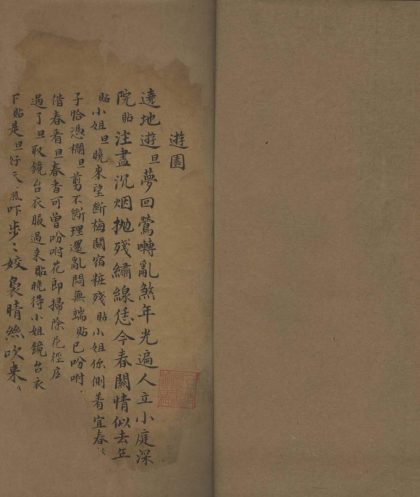 遊園
遶地遊旦夢回鶯囀亂煞年光遍人立小庭深
院貼注盡沉烟抛残繡線恁今春關情似去年
貼小姐旦曉來望断梅關宿粧残貼小姐你側着宜春
子恰憑欄旦剪不断理還亂悶無端貼已吩咐
借春看旦春香可曾吩咐花郎掃除花徑店
過了旦取鏡台衣服過来貼曉得小姐鏡台衣
下貼是旦好天風吓步〻姣裊晴絲吹来